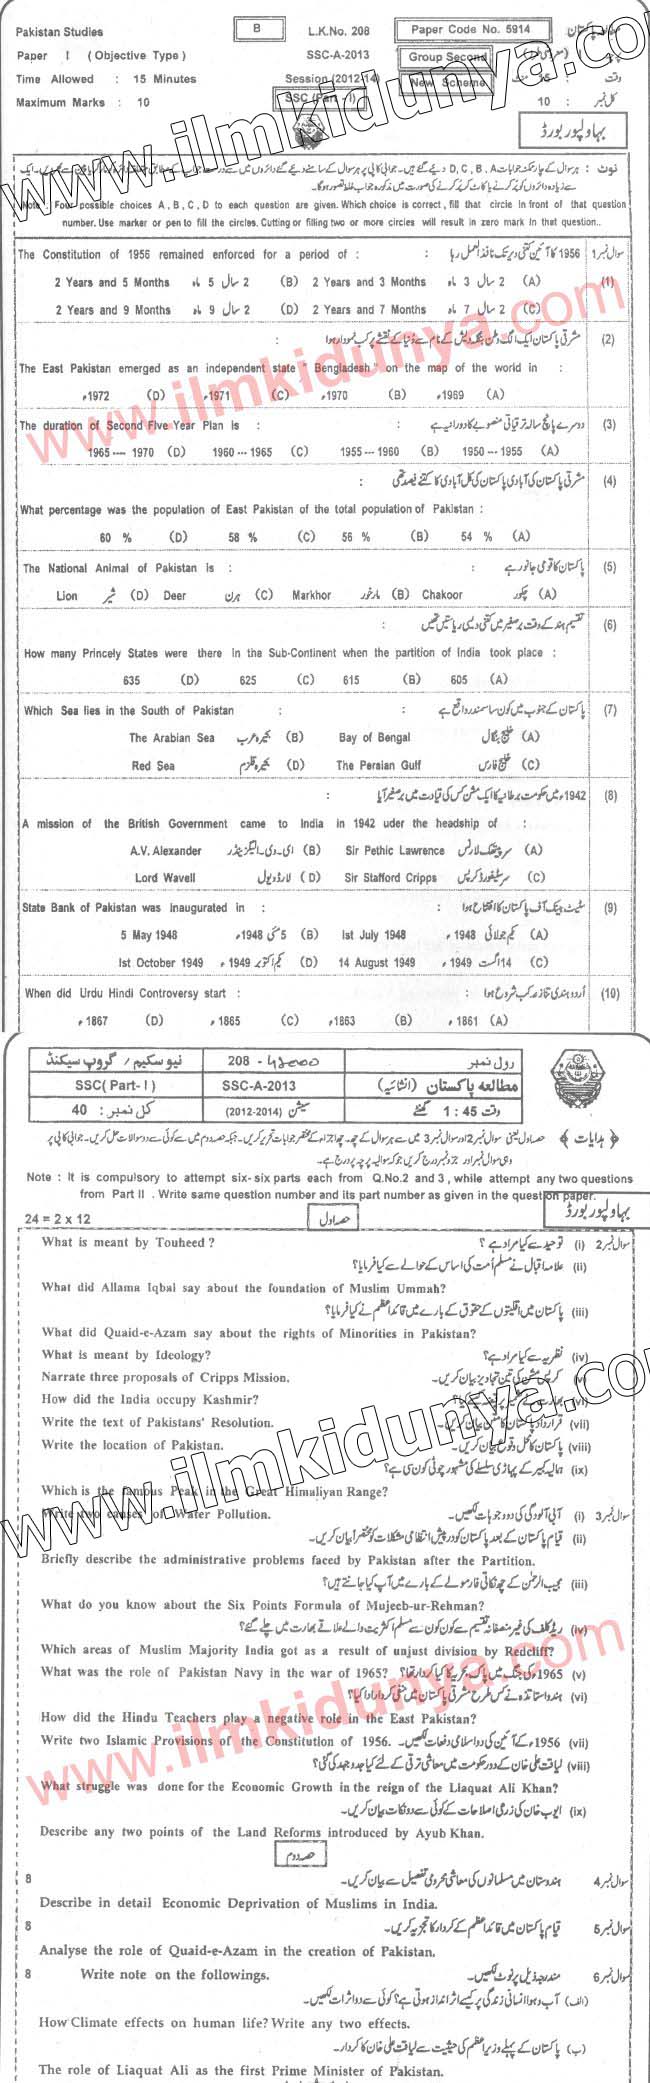 Pakistan Studies B L.K.No. 208 Paper Code No. 5914 مطالعہ پاکستان
Paper I ( Objective Type ) SSC-A-2013 Group Second
Time Allowed : 15 Minutes Session (2012-14) New Scheme وقت : 15 منٹ
Maximum Marks : 10 SSC (Part - I) کل نمبر : 10
بہاولپور بورڈ
نوٹ : ہر سوال کے چار ممکنہ جوابات D, C, B, A دیے گئے ہیں۔
Note : Four possible choices A, B, C, D to each question are given. Which choice is correct, fill that circle in front of that question
number. Use marker or pen to fill the circles. Cutting or filling two or more circles will result in zero mark in that question..
The Constitution of 1956 remained enforced for a period of : : 1956 کا آئین کتنی دیر تک نافذ العمل رہا سوال نمبر 1
2 Years and 5 Months 2 سال 5 ماہ (B) 2 Years and 3 Months 2 سال 3 ماہ (A) (1)
2 Years and 9 Months 2 سال 9 ماہ (D) 2 Years and 7 Months 2 سال 7 ماہ (C)
مشرقی پاکستان ایک الگ وطن بنگلہ دیش کے نام سے دنیا کے نقشے پر کب نمودار ہوا : (2)
The East Pakistan emerged as an independent state " Bengladesh " on the map of the world in :
1972ء (D) 1971ء (C) 1970ء (B) 1969ء (A)
The duration of Second Five Year Plan is : : دوسرے پانچ سالہ ترقیاتی منصوبے کا دورانیہ ہے (3)
1965 --- 1970 (D) 1960 --- 1965 (C) 1955 --- 1960 (B) 1950 --- 1955 (A)
مشرقی پاکستان کی آبادی پاکستان کی کل آبادی کا کتنے فیصد تھی : (4)
What percentage was the population of East Pakistan of the total population of Pakistan :
60 % (D) 58 % (C) 56 % (B) 54 % (A)
The National Animal of Pakistan is : : پاکستان کا قومی جانور ہے (5)
Lion شیر (D) Deer ہرن (C) Markhor مارخور (B) Chakoor چکور (A)
تقسیم ہند کے وقت برصغیر میں کتنی دیسی ریاستیں تھیں : (6)
How many Princely States were there in the Sub-Continent when the partition of India took place :
635 (D) 625 (C) 615 (B) 605 (A)
Which Sea lies in the South of Pakistan : : پاکستان کے جنوب میں کون سا سمندر واقع ہے (7)
The Arabian Sea بحیرہ عرب (B) Bay of Bengal خلیج بنگال (A)
Red Sea بحیرہ قلزم (D) The Persian Gulf خلیج فارس (C)
1942ء میں حکومت برطانیہ کا ایک مشن کس کی قیادت میں برصغیر آیا : (8)
A mission of the British Government came to India in 1942 uder the headship of :
A.V. Alexander اے۔وی۔الیگزینڈر (B) Sir Pethic Lawrence سر پیتھک لارنس (A)
Lord Wavell لارڈ ویول (D) Sir Stafford Cripps سر سٹیفورڈ کرپس (C)
State Bank of Pakistan was inaugurated in : : سٹیٹ بینک آف پاکستان کا افتتاح ہوا (9)
5 May 1948 5 مئی 1948ء (B) Ist July 1948 یکم جولائی 1948ء (A)
Ist October 1949 یکم اکتوبر 1949ء (D) 14 August 1949 14 اگست 1949ء (C)
When did Urdu Hindi Controversy start : : اُردو ہندی تنازعہ کب شروع ہوا (10)
1867ء (D) 1865ء (C) 1863ء (B) 1861ء (A)
نیو سکیم / گروپ سیکنڈ 208 رول نمبر
SSC( Part- I ) SSC-A-2013 مطالعہ پاکستان (انشائیہ)
کل نمبر : 40 سیشن (2012-2014) وقت 1 : 45 گھنٹے
﴿ ہدایات ﴾ حصہ اول یعنی سوال نمبر 2 اور سوال نمبر 3 میں سے ہر سوال کے چھ۔ چھ اجزاء کے مختصر جوابات تحریر کریں۔ جبکہ حصہ دوم میں سے کوئی سے دو سوالات حل کریں۔ جوابی کاپی پر
وہی سوال نمبر اور جزو نمبر درج کریں جو کہ سوالیہ پرچہ پر درج ہے۔
Note : It is compulsory to attempt six- six parts each from Q.No.2 and 3 , while attempt any two questions
from Part II . Write same question number and its part number as given in the question paper.
بہاولپور بورڈ
24 = 2 x 12 حصہ اول
What is meant by Touheed ? توحید سے کیا مراد ہے ؟ (i) سوال نمبر 2
علامہ اقبال نے مسلم اُمت کی اساس کے حوالے سے کیا فرمایا؟ (ii)
What did Allama Iqbal say about the foundation of Muslim Ummah?
پاکستان میں اقلیتوں کے حقوق کے بارے میں قائد اعظم نے کیا فرمایا؟ (iii)
What did Quaid-e-Azam say about the rights of Minorities in Pakistan?
What is meant by Ideology? نظریہ سے کیا مراد ہے؟ (iv)
Narrate three proposals of Cripps Mission. کرپس مشن کی تین تجاویز بیان کریں۔ (v)
How did the India occupy Kashmir?
Write the text of Pakistans' Resolution. قرارداد پاکستان کا متن بیان کریں۔ (vii)
Write the location of Pakistan. پاکستان کا محل وقوع بیان کریں۔ (viii)
ہمالیہ کبیر کے پہاڑی سلسلے کی مشہور چوٹی کون سی ہے؟ (ix)
Which is the famous Peak in the Great Himaliyan Range?
Write two causes of Water Pollution. آبی آلودگی کی دو وجوہات لکھیں۔ (i) سوال نمبر 3
قیام پاکستان کے بعد پاکستان کو درپیش انتظامی مشکلات کو مختصراً بیان کریں۔ (ii)
Briefly describe the administrative problems faced by Pakistan after the Partition.
مجیب الرحمٰن کے چھ نکاتی فارمولے کے بارے میں آپ کیا جانتے ہیں؟ (iii)
What do you know about the Six Points Formula of Mujeeb-ur-Rehman?
ریڈ کلف کی غیر منصفانہ تقسیم سے کون کون سے مسلم اکثریت والے علاقے بھارت میں چلے گئے؟ (iv)
Which areas of Muslim Majority India got as a result of unjust division by Redcliff?
What was the role of Pakistan Navy in the war of 1965? 1965ء کی جنگ میں پاک بحریہ کا کیا کردار تھا؟ (v)
ہندو اساتذہ نے کس طرح مشرقی پاکستان میں منفی کردار ادا کیا؟ (vi)
How did the Hindu Teachers play a negative role in the East Pakistan?
Write two Islamic Provisions of the Constitution of 1956. 1956ء کے آئین کی دو اسلامی دفعات لکھیں۔ (vii)
لیاقت علی خان کے دور حکومت میں معاشی ترقی کے لئے کیا جدوجہد کی گئی؟ (viii)
What struggle was done for the Economic Growth in the reign of the Liaquat Ali Khan?
ایوب خان کی زرعی اصلاحات کے کوئی سے دو نکات بیان کریں۔ (ix)
Describe any two points of the Land Reforms introduced by Ayub Khan.
حصہ دوم
8 ہندوستان میں مسلمانوں کی معاشی محرومی تفصیل سے بیان کریں۔ سوال نمبر 4
Describe in detail Economic Deprivation of Muslims in India.
8 قیام پاکستان میں قائد اعظم کے کردار کا تجزیہ کریں۔ سوال نمبر 5
Analyse the role of Quaid-e-Azam in the creation of Pakistan.
8 Write note on the followings. مندرجہ ذیل پر نوٹ لکھیں۔ سوال نمبر 6
(الف) آب و ہوا انسانی زندگی پر کیسے اثر انداز ہوتی ہے؟ کوئی سے دو اثرات لکھیں۔
How Climate effects on human life? Write any two effects.
(ب) پاکستان کے پہلے وزیر اعظم کی حیثیت سے لیاقت علی خان کا کردار۔
The role of Liaquat Ali as the first Prime Minister of Pakistan.
www.ilmkidunya.com
www.ilmkidunya.com
www.ilmkidunya.com
www.ilmkidunya.com